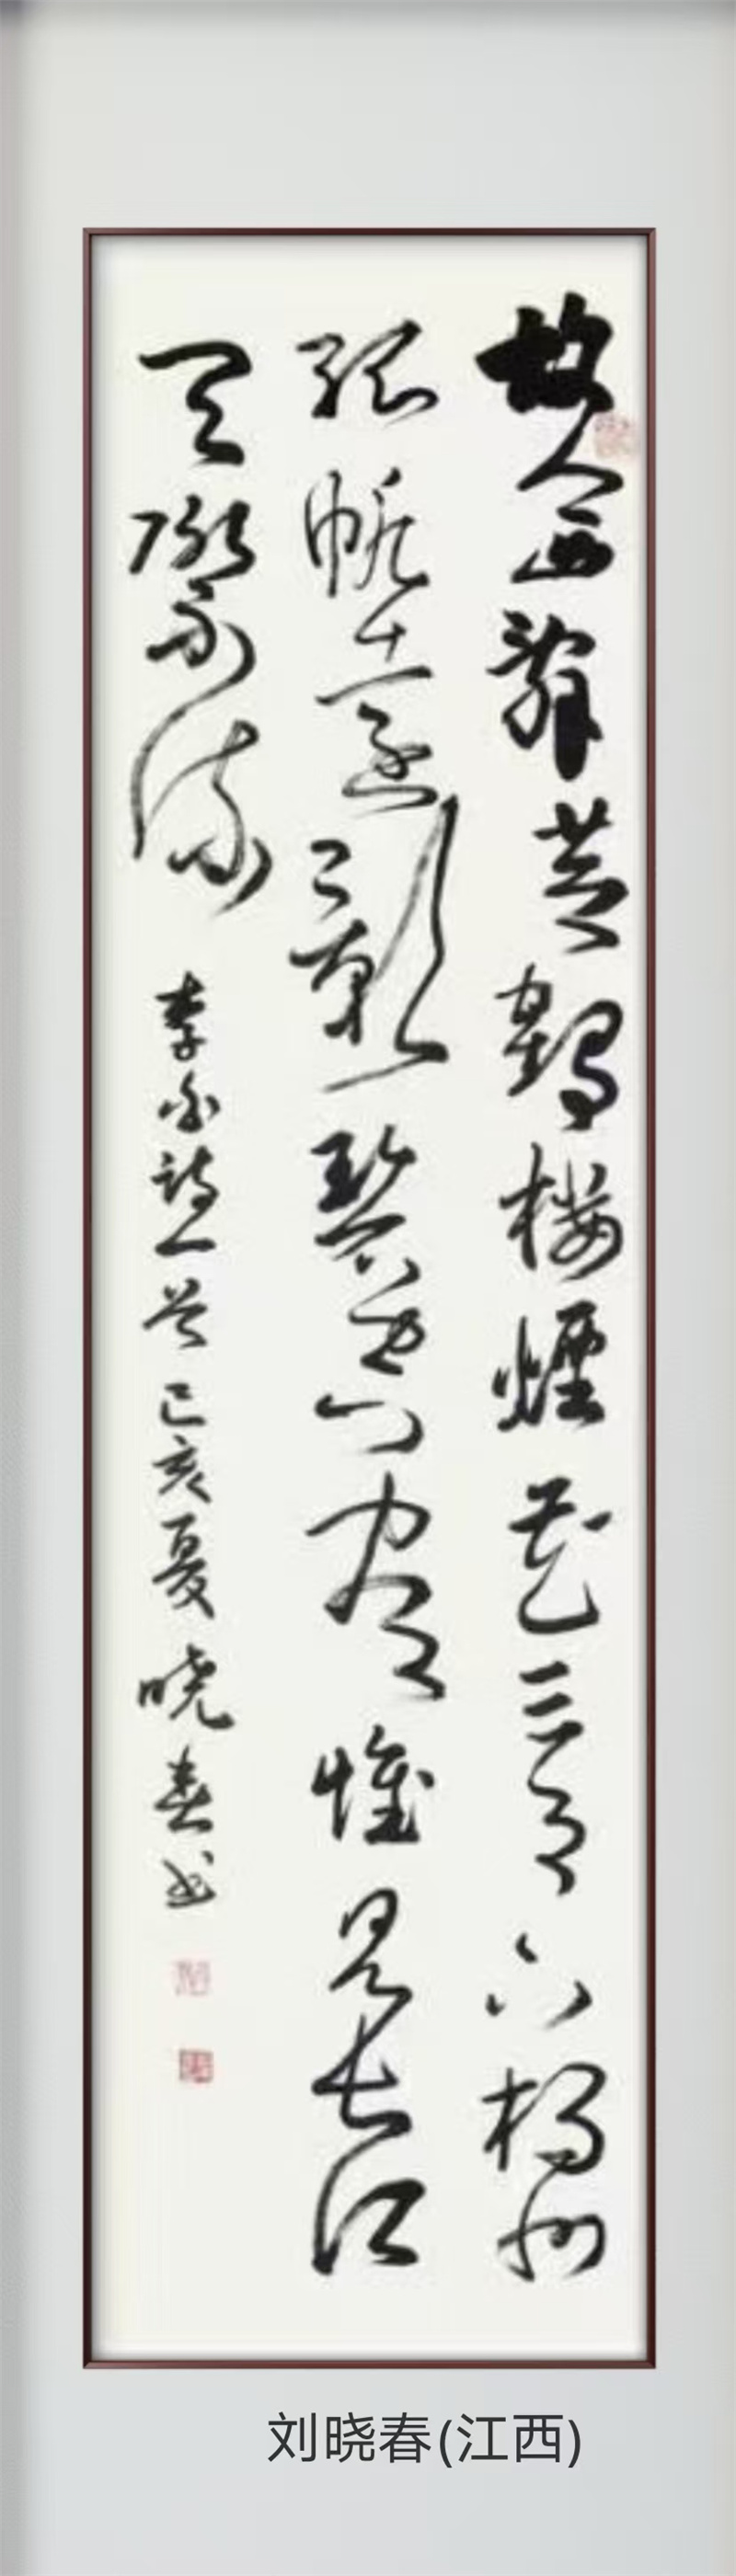 故人西辞黄鹤楼煙花三月下揚州
孤帆远影碧空尽惟见长江
天际流
李白诗一首己亥夏晓春书
刘晓春(江西)